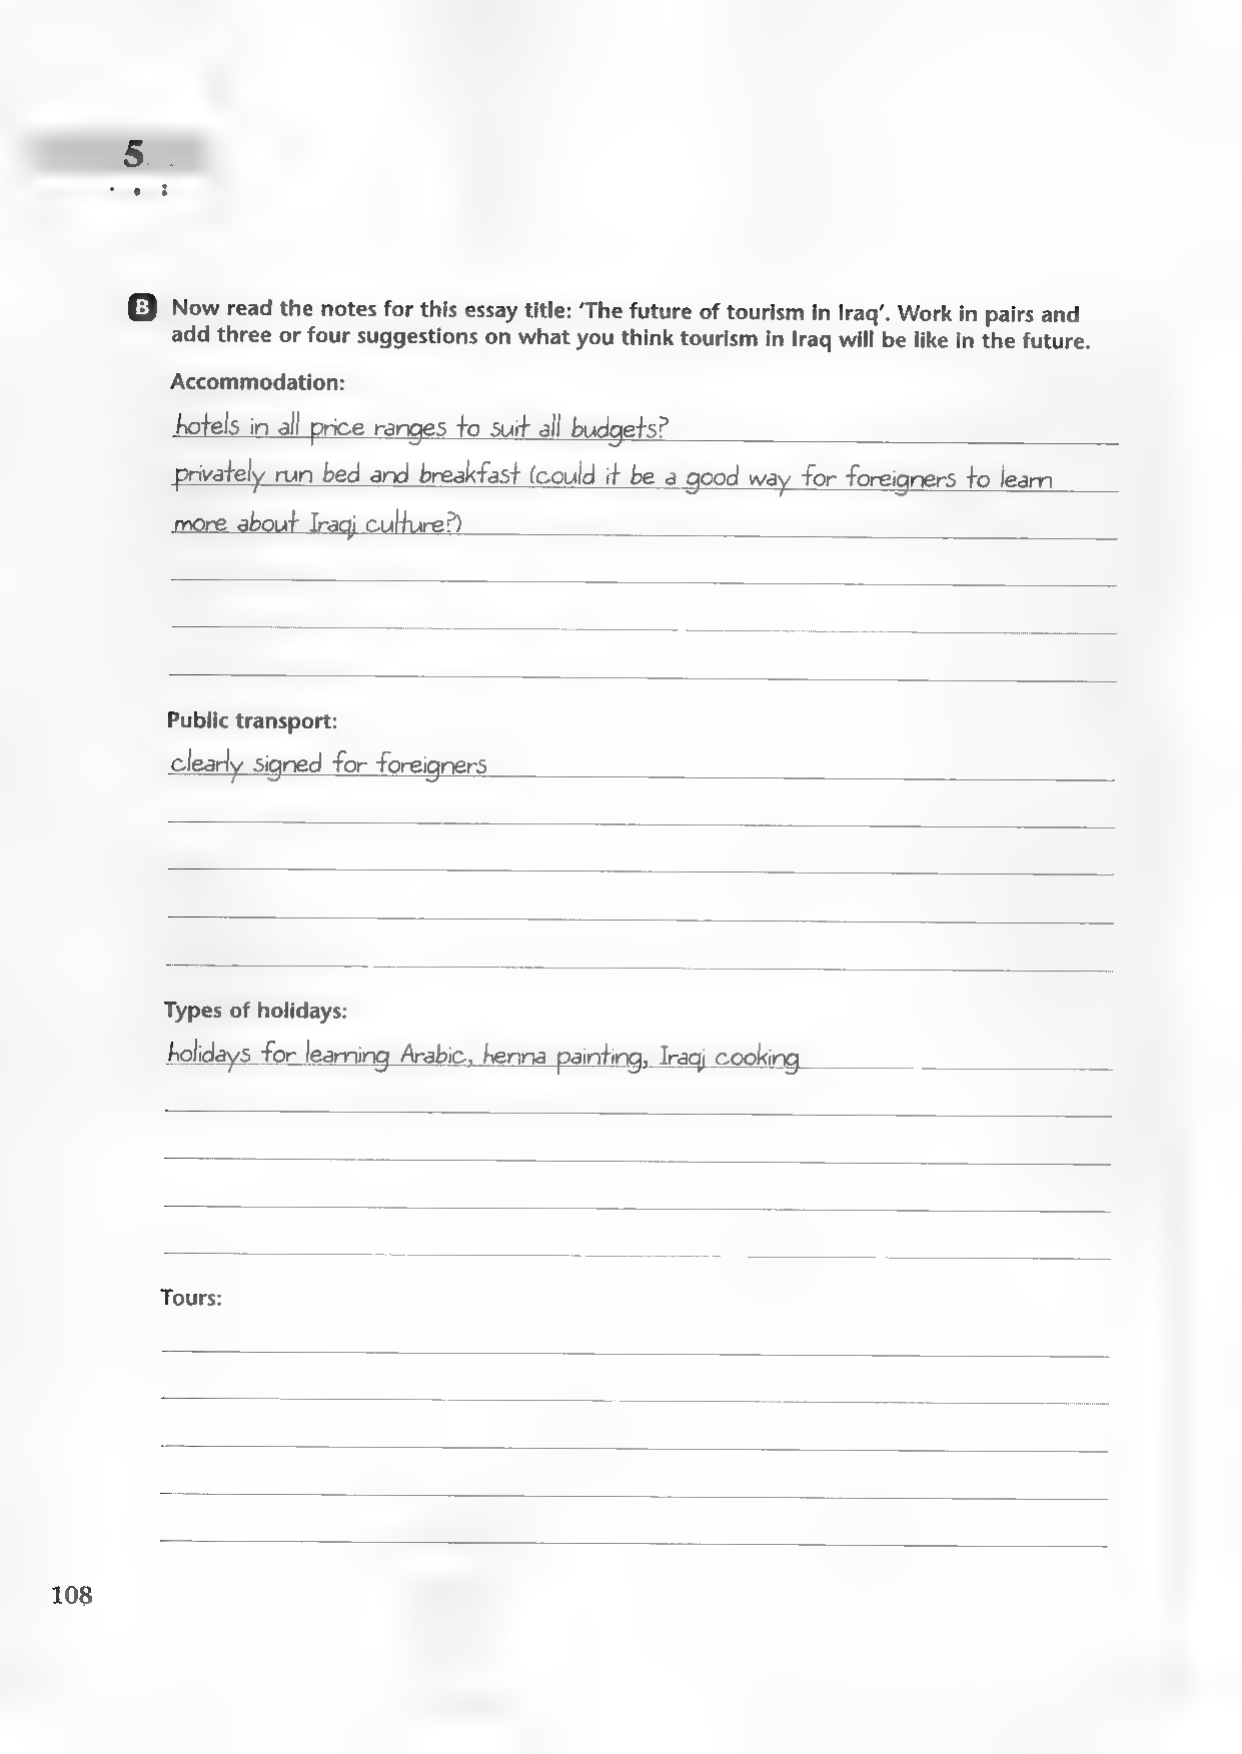 5
B Now read the notes for this essay title: ‘The future of tourism in Iraq’. Work in pairs and
add three or four suggestions on what you think tourism in Iraq will be like in the future.
Accommodation:
hotels in all price ranges to suit all budgets?
privately run bed and breakfast (could it be a good way for foreigners to learn
more about Iraqi culture?)
Public transport:
clearly signed for foreigners
Types of holidays:
holidays for learning Arabic, henna painting, Iraqi cooking
Tours:
108